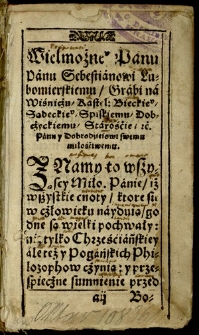 Wielmożne° Panu
Pánu Sebestianowi Lu-
bomierskiemu / Grábi ná
Wiśnicżu / Kászt‹l: Bieckie°
Sądeckie° / Spiskiemu / Dob-
cżyckiemu / Stárośćie / ꝛc.
Pánu y Dobrodzieiowi swemu
miłośćiwemu.
Z Namy to wszy-
scy Miło. Pánie / iż
wszystkie cnoty / ktore su
w cżłowieku náyduią / go
dne są wielki pochwały:
nie tylko Chrześćiáńskiey
ále też y Pogáńskich Phi-
lozophow cżynią: y prze-
spiecżne sumnienie przed
aij Bo-